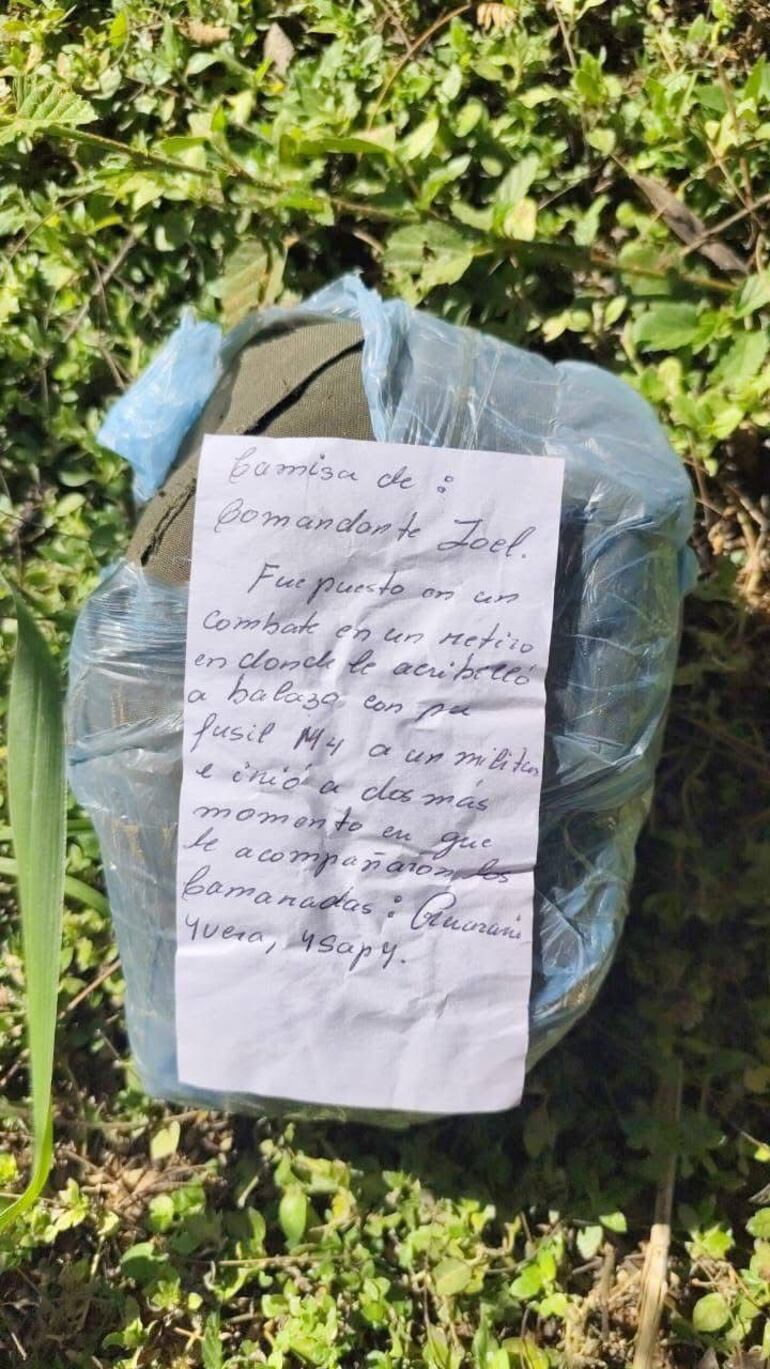 Camisa de :
Comandante Joel.
Fue puesto en un
combate en un retiro
en donde le acribilló
a balazo con su
fusil M4 a un militar
e irió a dos más
momento en que
le acompañaron los
Camaradas : Guarani
Yvera, Ysapy.